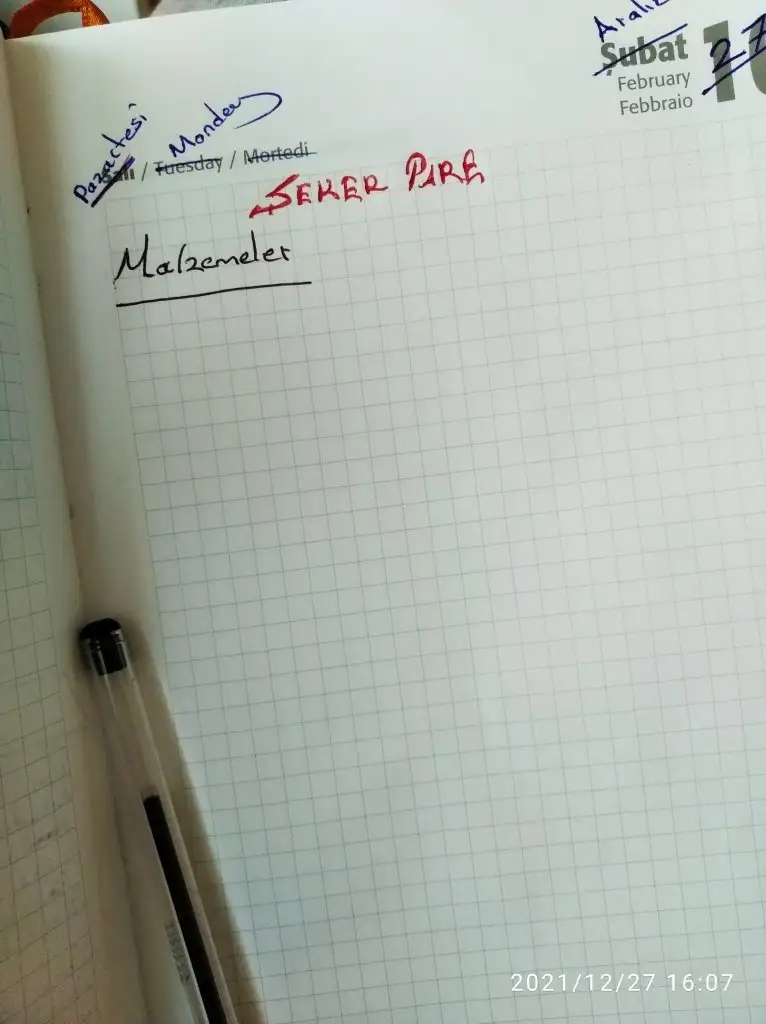 Aralı
Şubat 27
February
Febbraio
Pazartesi Monday
/ Tuesday / Mortedi
ŞEKER PARE
Malzemeler
2021/12/27 16:07